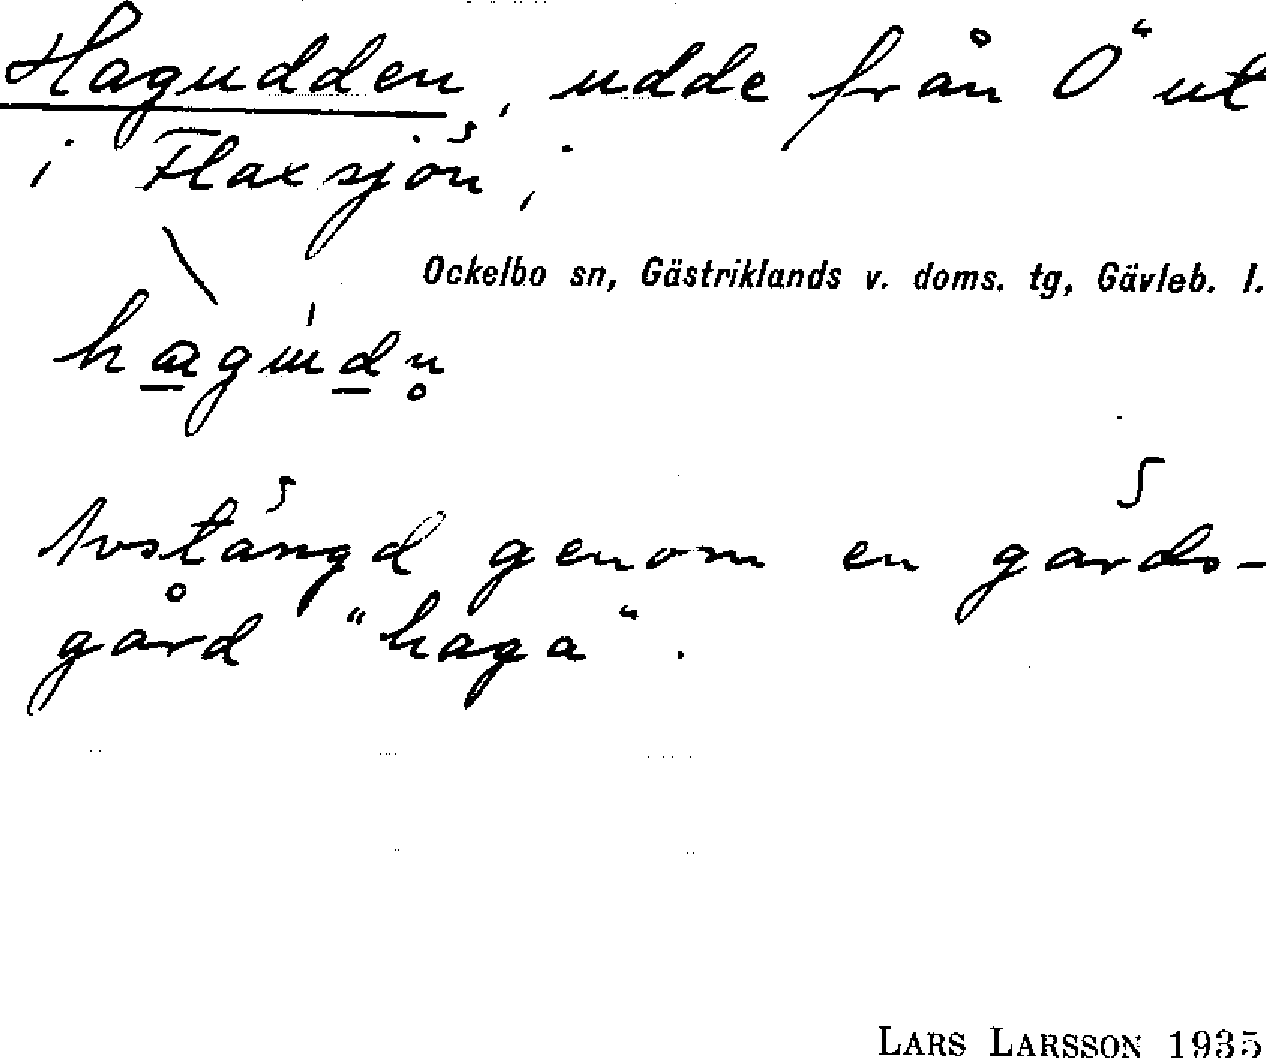 Hagudden, udde från Ö ut
i Flaxsjön,
Ockelbo sn, Gästriklands v. doms. tg, Gävleb. l.
Avstängd genom en gärds-
gård "haga".
LARS LARSSON 1935